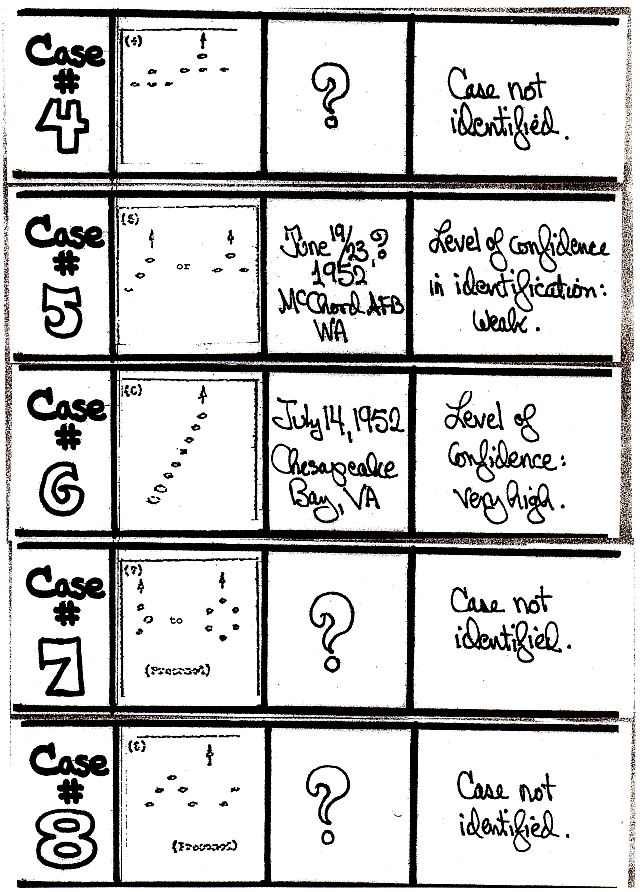 Case
#
4
(4)
?
Case not
identified.
Case
#
5
(5)
or
June 19/23,?
1952
McChord AFB
WA
Level of Confidence
in identification:
Weak.
Case
#
6
July 14, 1952
Chesapeake
Bay, VA
Level of
Confidence:
very high.
Case
#
7
(7)
to
?
Case not
identified.
Case
#
8
?
Case not
identified.